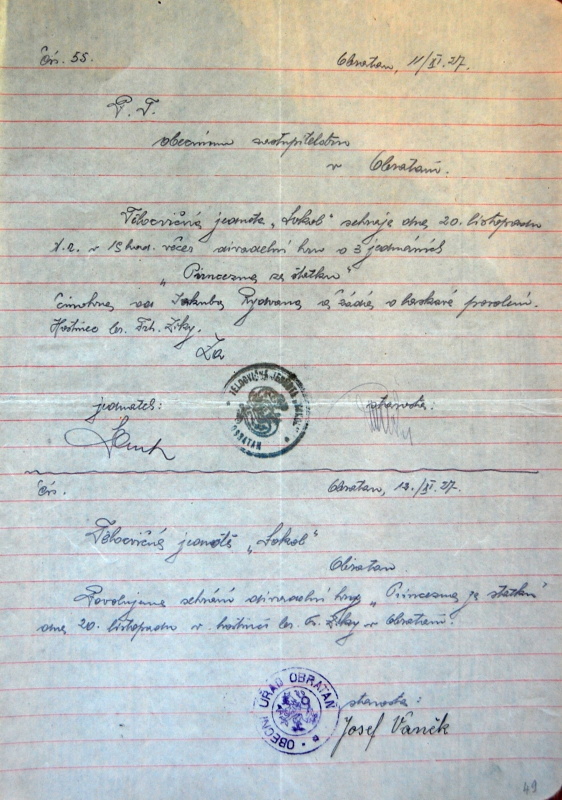 Čís. 55.
Obratan, 11/XI. 27.
P. T.
obecnímu zastupitelstvu
v Obratani.
Tělocvičná jednota „Sokol“ sehraje dne 20. listopadu
t. r. v hod. večer divadelní hru o 3 jednáních
„Princezna ze statku“
činohra od Jakuba Rydvana a žádá o laskavé povolení.
Hostinec br. Frt. Ziky.
Za
TĚLOCVIČNÁ JEDNOTA „SOKOL“ OBRATAŇ
jednatel:
starosta:
Čís.
Obratan, 12./XI. 27.
Tělocvičné jednotě „Sokol“
Obratan.
Povolujeme sehrání divadelní hry „Princezna ze statku“
dne 20. listopadu v hostinci br. Fr. Ziky v Obratani.
OBECNÍ ÚŘAD OBRATAŇ
starosta:
Josef Vaněk
49